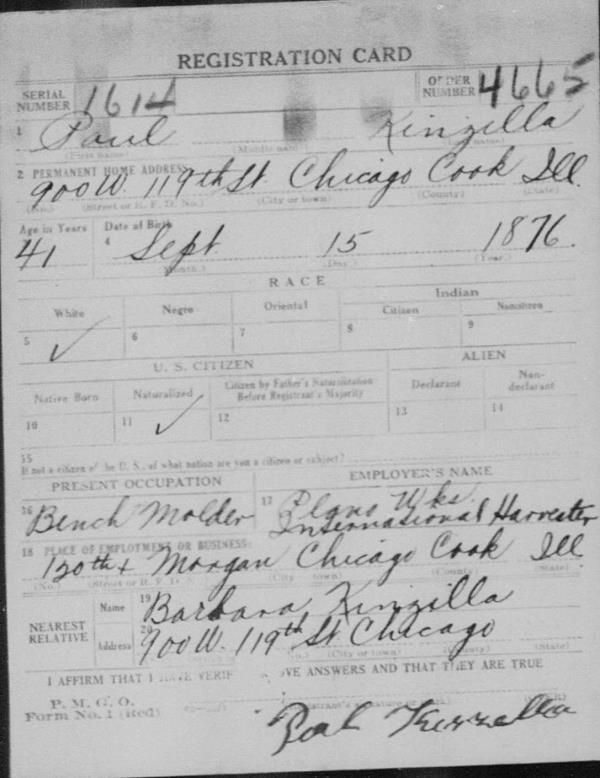 REGISTRATION CARD
SERIAL NUMBER 1614 ORDER NUMBER 4665
1 Paul Kinzilla
(First name) (Middle name) (Last name)
2 PERMANENT HOME ADDRESS:
900 W. 119th St Chicago Cook Ill.
(No.) (Street or R. F. D. No.) (City or town) (County) (State)
Age in Years Date of Birth
41 4 Sept. 15 1876.
(Month.) (Day.) (Year.)
RACE
White Negro Oriental Indian
Citizen Noncitizen
5 ✓ 6 7 8 9
U. S. CITIZEN ALIEN
Native Born Naturalized Citizen by Father's Naturalization Before Registrant's Majority Declarant Non-declarant
10 11 ✓ 12 13 14
15
If not a citizen of the U. S., of what nation are you a citizen or subject?
PRESENT OCCUPATION EMPLOYER'S NAME
16 Bench Molder 17 Plano Wks.
International Harvester
18 PLACE OF EMPLOYMENT OR BUSINESS:
120th + Morgan Chicago Cook Ill
(No.) (Street or R. F. D. No.) (City or town) (County) (State)
NEAREST RELATIVE Name 19 Barbara Kinzilla
Address 20 900 W. 119th St. Chicago
(No.) (City or town) (County) (State)
I AFFIRM THAT I HAVE VERIF OVE ANSWERS AND THAT THEY ARE TRUE
P. M. G. O.
Form No. 1 (Red)
(Registrant's signature or mark)